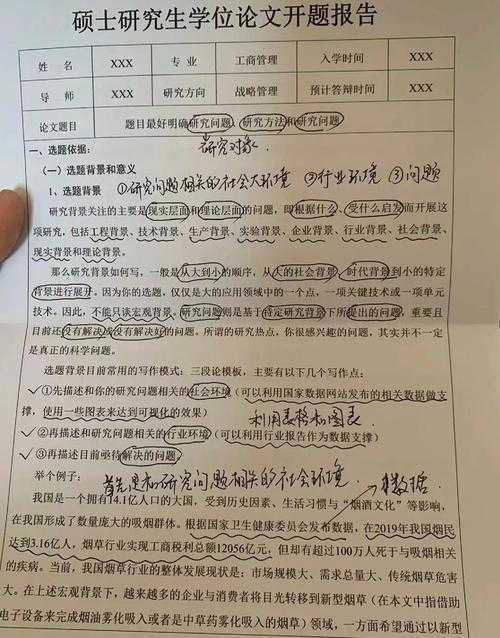 硕士研究生学位论文开题报告
姓 名 XXX 专 业 工商管理 入学时间 XXX
导 师 XXX 研究方向 战略管理 预计答辩时间 XXX
论文题目 题目最好明确研究问题、研究方法和研究问题
研究对象
一、选题依据：
（一）选题背景和意义
1、选题背景 ①研究问题相关的社会大环境 ②行业环境 ③问题
研究背景关注的主要是现实层面和理论层面的问题，即根据什么、受什么启发而开展这
项研究，包括工程背景、技术背景、生产背景、实验背景、企业背景、行业背景、社会背景、
现实背景和理论背景。
那么研究背景如何写，一般是从大到小的顺序，从大的社会背景、时代背景到小的特定
背景进行展开。因为你的选题，仅仅是大的应用领域中的一个点，一项关键技术或一项单元
技术。因此，不能只谈宏观背景。研究问题则是基于特定研究背景下所提出的问题，重要且
目前还没有解决或没有解决好的问题。所谓的研究热点，你很感兴趣的问题，其实并不一定
是真正的科学问题。
选题背景目前常用的写作模式：三段论模板，主要有以下几个写作点：
✓①先描述和你的研究问题相关的社会环境（可以利用国家数据网站发布的相关数据做支
撑，使用一些图表来达到可视化的效果） 利用表格和图表
✓②再描述和研究问题相关的行业环境（可以利用行业报告作为数据支撑）
✓③再描述目前亟待解决的问题。
举个例子： 首先是和研究问题相关的社会环境 数据
我国是一个拥有14.1亿人口的大国，受到历史因素、生活习惯与“烟酒文化”等影响，
在我国形成了数量庞大的吸烟群体。根据国家卫生健康委员会发布数据，在2019年我国烟民
达到3.16亿人，烟草行业实现工商税利总额12056亿元，但却有超过100万人死于与吸烟相关
的疾病。当前，我国烟草行业的整体发展现状是：市场规模大、需求总量大、传统烟草危害
大。在上述宏观背景下，越来越多的企业与消费者将目光转移到新型烟草（在本文中指借助
电子设备来完成烟油雾化吸入或者是中草药雾化吸入的烟草）领域，一方面希望通过以新型